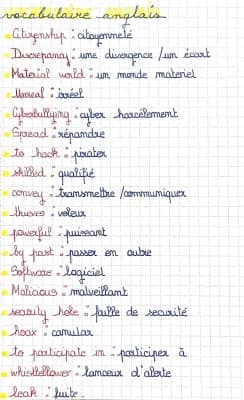 vocabulaire anglais
Citizenship : citoyenneté
Discrepancy : une divergence / un écart
Material world : un monde materiel
Unreal : iréel
Cyberbullying : cyber harcèlement
Spread : répandre
to hack : pirater
skilled : qualifié
convey : transmettre / communiquer
thieves : voleur
powerful : puissant
by part : passer en outre
Software : logiciel
Malicious : malveillant
security hole : faille de securité
hoax : canular
to participate in : participer à
whistleblower : lanceur d'alerte
leak : fuite